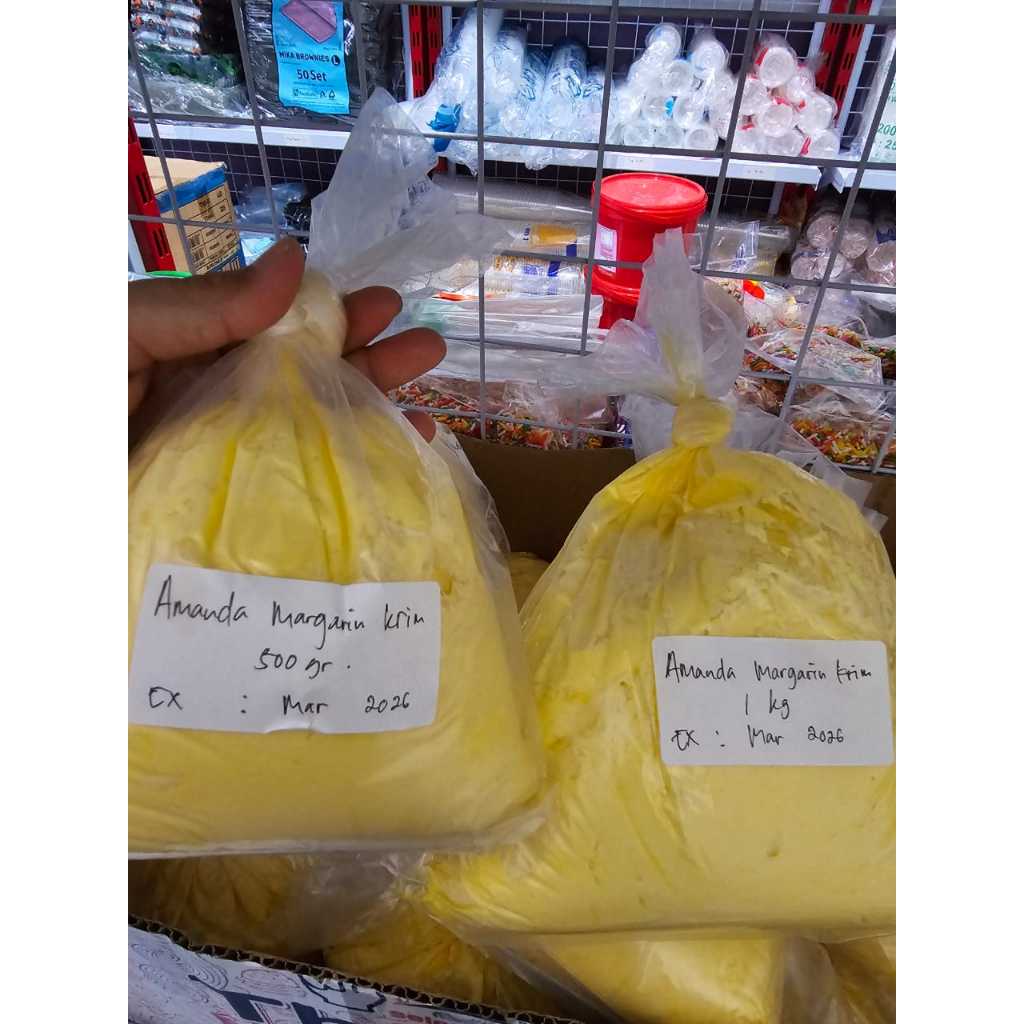 MIKA BROWNIES L
50 Set
200
: 25
Amanda Margarin krim
500 gr.
EX : Mar 2026
Amanda Margarin krim
1 kg
EX : Mar 2026